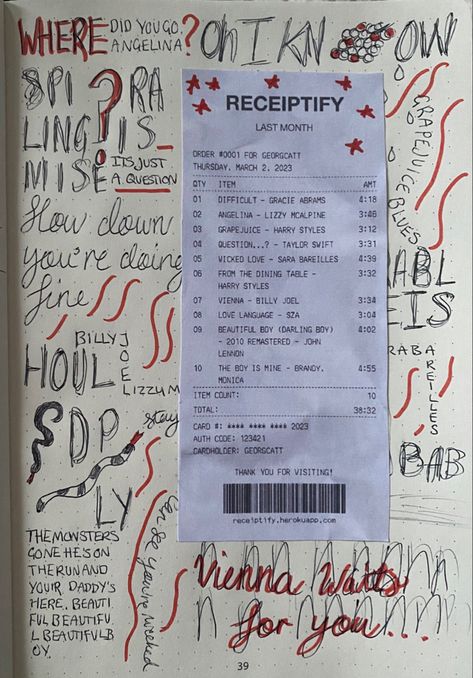 WHERE DID YOU GO, ANGELINA?
OH I KNOW
SPIRA
LING IS
MISE
IT IS JUST
A QUESTION
Slow down
you're doing
fine
GRAPEJUICE BLUES
BILLY JOEL
LIZZY M
stay
HOUL
SDP
LY
ABL
EIS
ARA BAREILLES
BAB
RECEIPTIFY
LAST MONTH
ORDER #0001 FOR GEORGCATT
THURSDAY, MARCH 2, 2023
QTY ITEM AMT
01 DIFFICULT - GRACIE ABRAMS 4:18
02 ANGELINA - LIZZY MCALPINE 3:46
03 GRAPEJUICE - HARRY STYLES 3:12
04 QUESTION...? - TAYLOR SWIFT 3:31
05 WICKED LOVE - SARA BAREILLES 4:39
06 FROM THE DINING TABLE - 3:32
HARRY STYLES
07 VIENNA - BILLY JOEL 3:34
08 LOVE LANGUAGE - SZA 3:04
09 BEAUTIFUL BOY (DARLING BOY) 4:02
- 2010 REMASTERED - JOHN
LENNON
10 THE BOY IS MINE - BRANDY, 4:55
MONICA
ITEM COUNT: 10
TOTAL: 38:32
CARD #: **** **** **** 2023
AUTH CODE: 123421
CARDHOLDER: GEORGCATT
THANK YOU FOR VISITING!
receiptify.herokuapp.com
THE MONSTERS
GONE HE'S ON
THE RUN AND
YOUR DADDY'S
HERE, BEAUTI
FUL BEAUTIFU
L BEAUTIFUL B
OY.
you're wicked
Vienna Waits
for you...
39